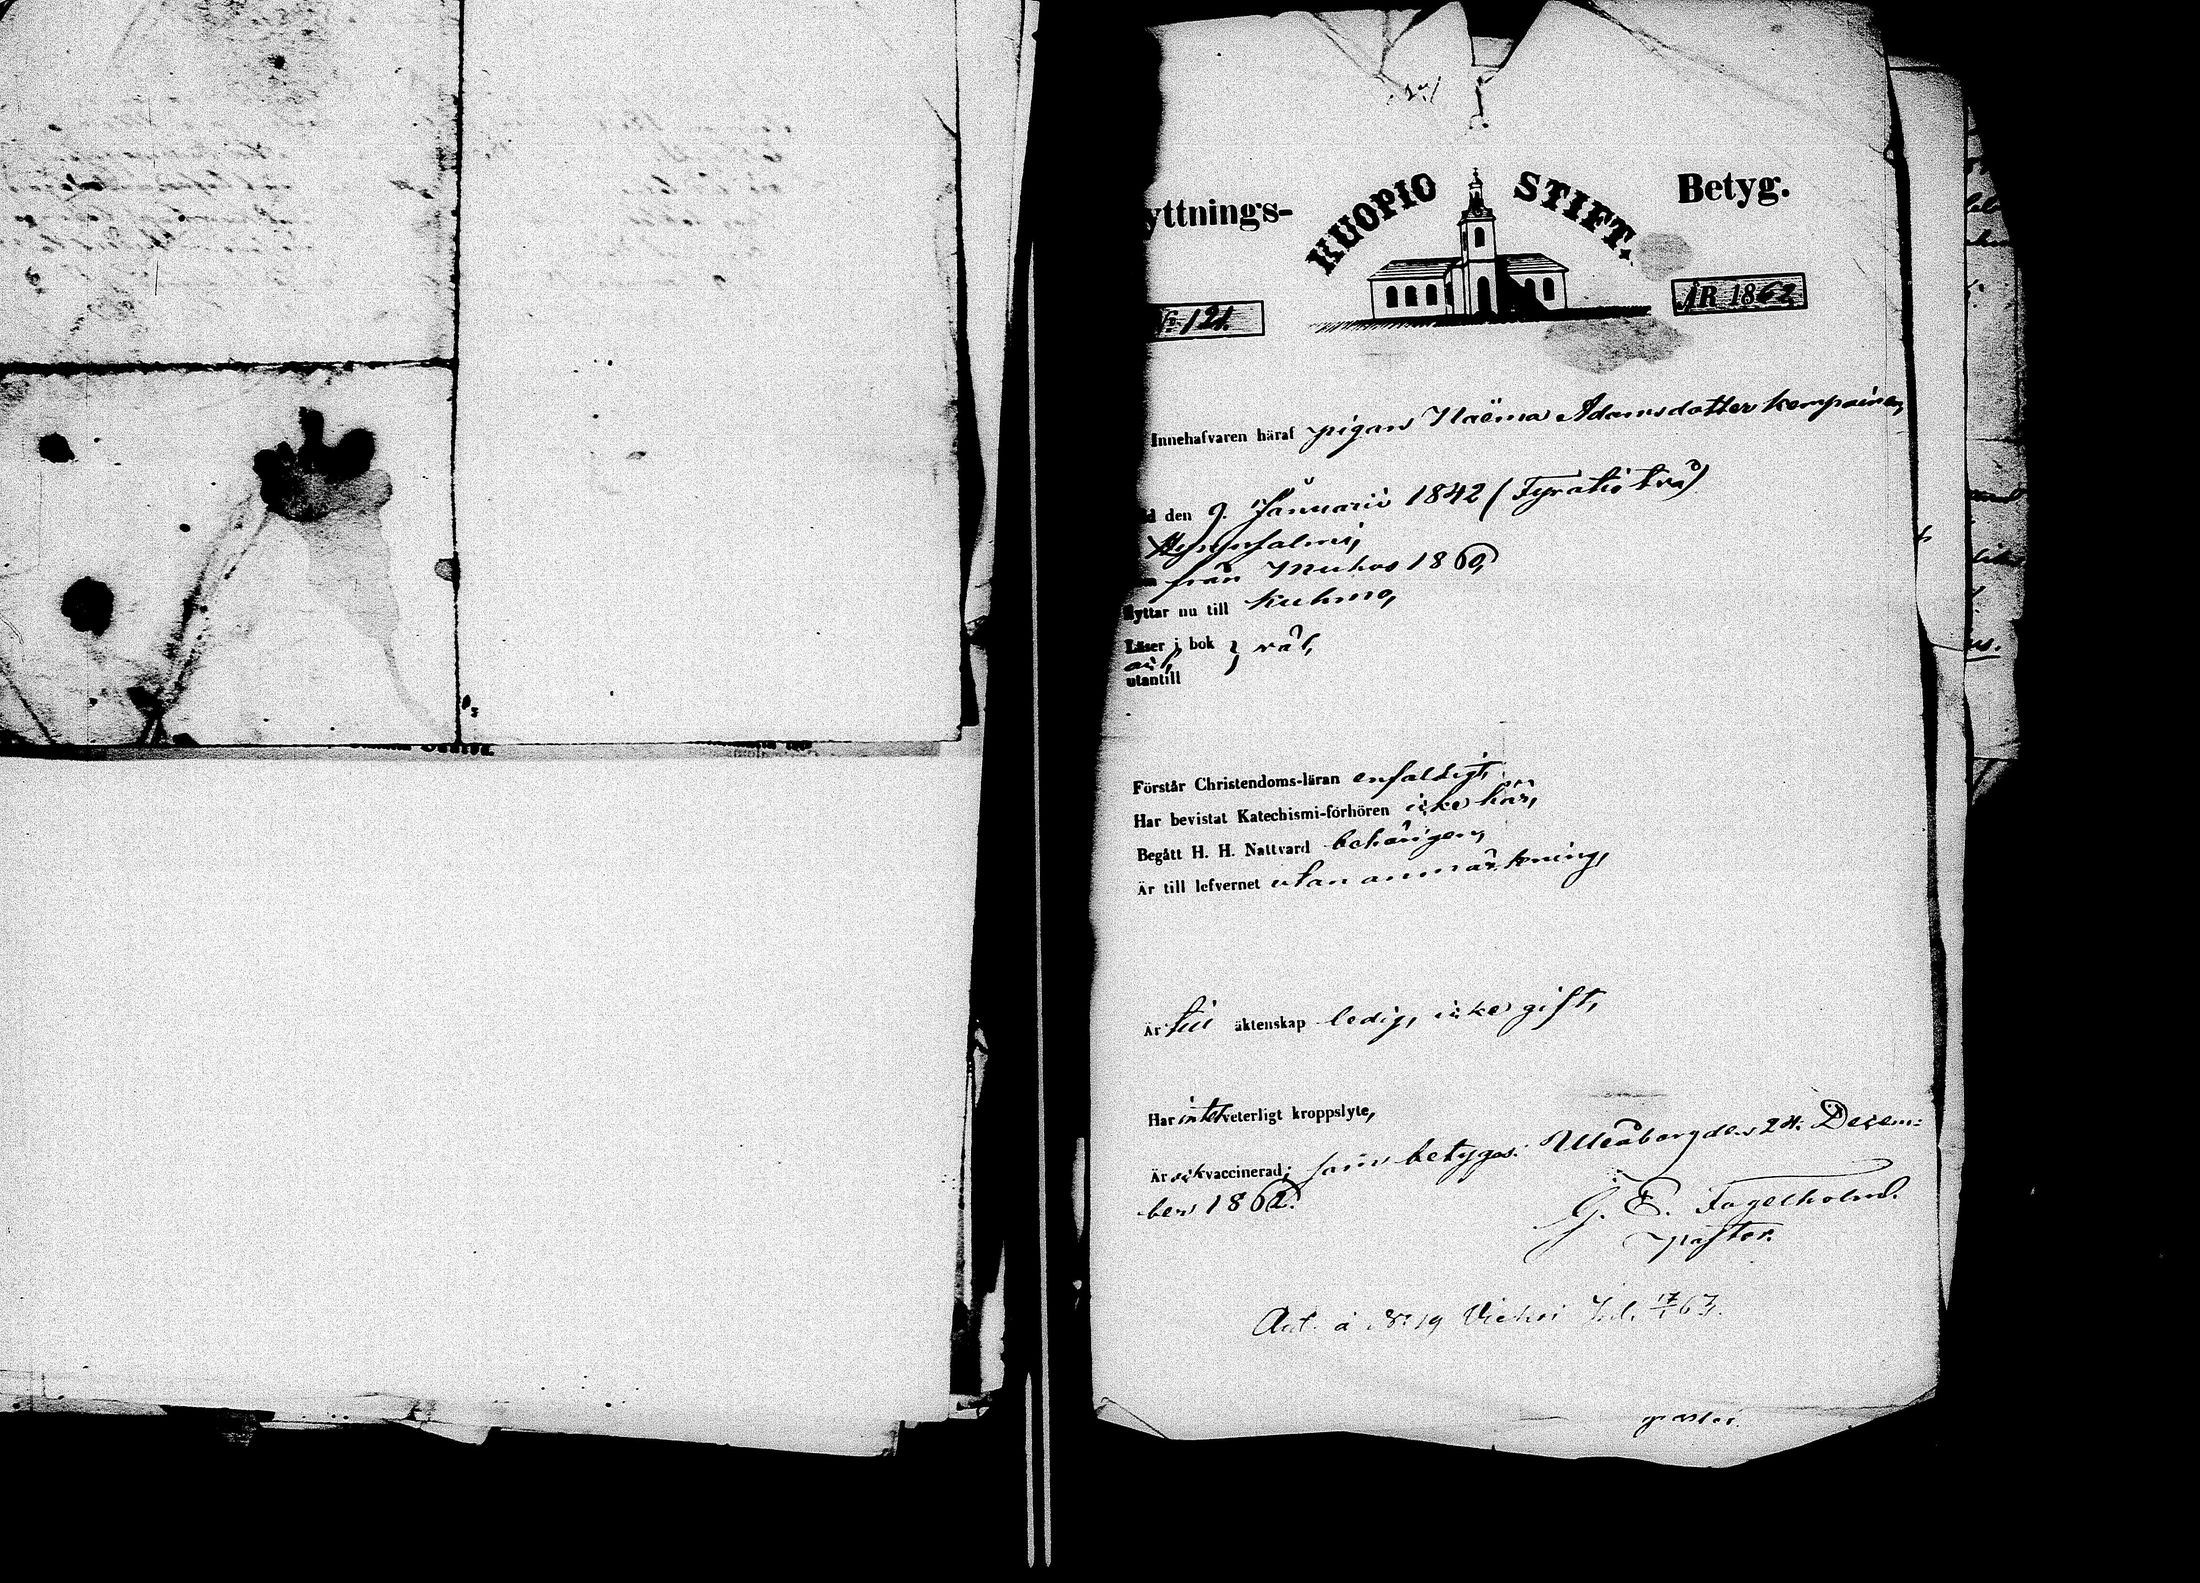 yttnings-
KUOPIO STIFT.
Betyg.
№ 121.
ÅR 1862
Innehafvaren häraf pigan Naëma Adamsdotter Kempainen
d den 9. Januarii 1842 (Fyratio två)
Hyrynsalmi,
från Muhos 1860,
flyttar nu till Kuhmo,
Läser i bok } väl,
utantill
Förstår Christendoms-läran enfaldigt,
Har bevistat Katechismi-förhören icke här,
Begått H. H. Nattvard behörigen,
Är till lefvernet utan anmärkning,
Är till äktenskap ledig, icke gift,
Har intet veterligt kroppslyte,
Är vaccinerad; som betygas. Uleåborg den 24. Decem-
ber 1862.
G. E. Fagelholm.
pastor.
Ant. å № 19 Vieksi 17/1 63.